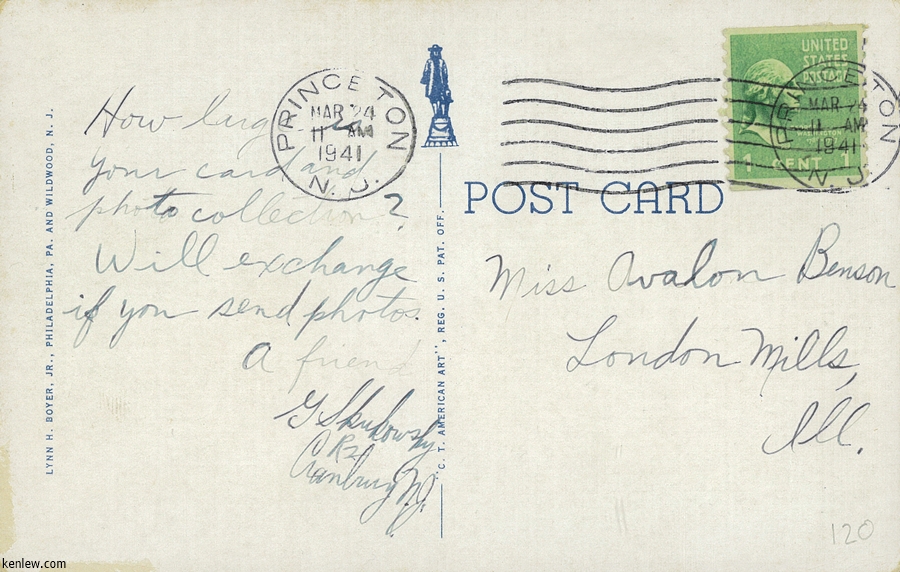 How big is
your card and
photo collection?
Will exchange
if you send photos.
A friend
G Skukowsky
R2
Cranbury N.J.
PRINCETON
MAR 24
11 AM
1941
N. J.
LYNN H. BOYER, JR., PHILADELPHIA, PA. AND WILDWOOD, N. J.
"C. T. AMERICAN ART", REG. U. S. PAT. OFF.
POST CARD
UNITED
STATES
POSTAGE
WASHINGTON
1 CENT 1
PRINCETON
MAR 24
11 AM
1941
N. J.
Miss Avalon Benson
London Mills,
Ill.
120
kenlew.com